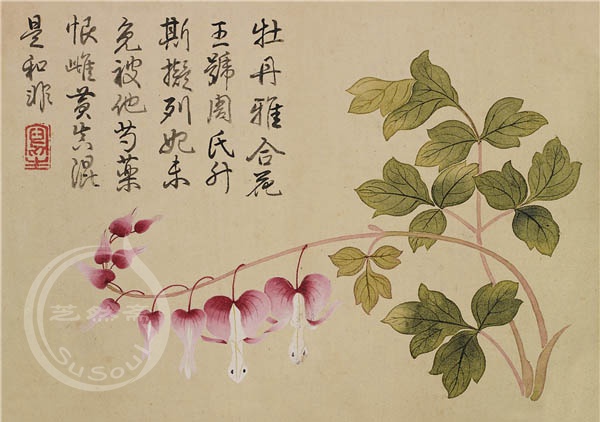 牡丹雅合花
王號閼氏升
斯擬列妃未
免被他芍藥
恨雌黄真混
是和非
SuSoul